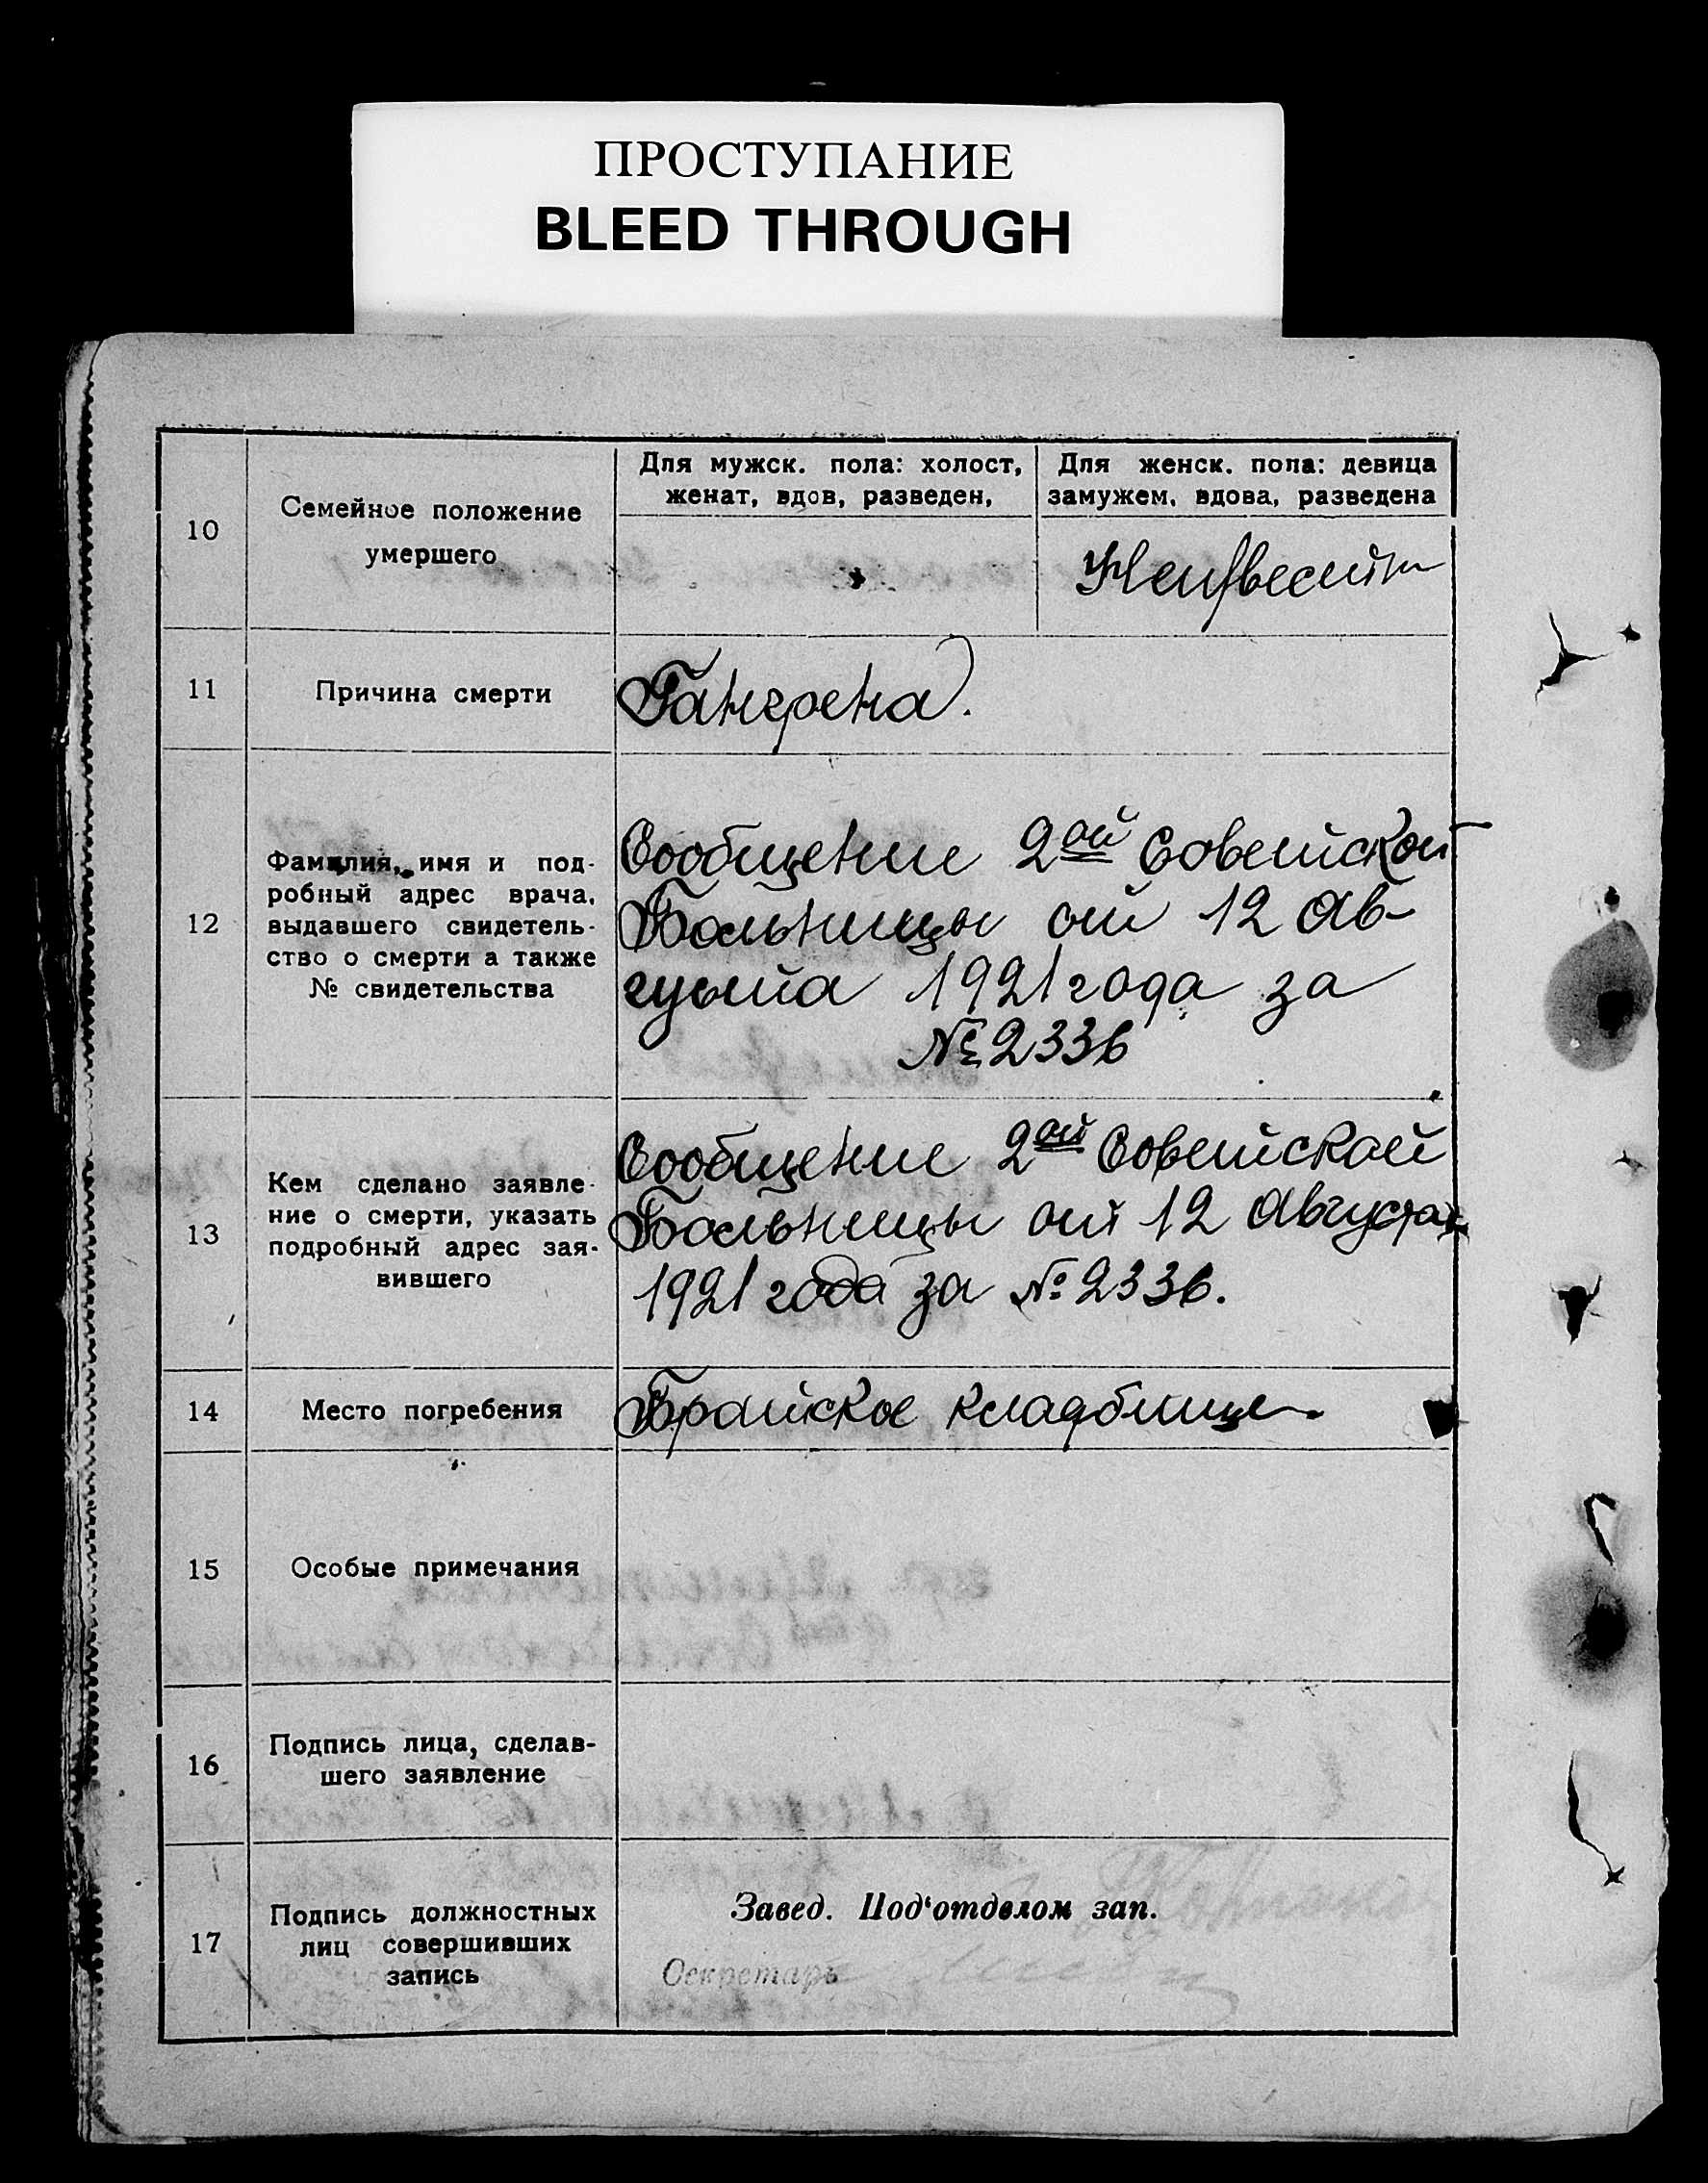 ПРОСТУПАНИЕ
BLEED THROUGH
10
Семейное положение
умершего
Для мужск. пола: холост,
женат, вдов, разведен,
Для женск. пола: девица
замужем, вдова, разведена
Неизвестно
11
Причина смерти
Гангрена.
12
Фамилия, имя и под-
робный адрес врача,
выдавшего свидетель-
ство о смерти а также
№ свидетельства
Сообщение 2ой Советской
Больницы от 12 Ав-
густа 1921 года за
№ 2336
13
Кем сделано заявле-
ние о смерти, указать
подробный адрес зая-
вившего
Сообщение 2ой Советской
Больницы от 12 Августа
1921 года за № 2336.
14
Место погребения
Братское кладбище.
15
Особые примечания
16
Подпись лица, сделав-
шего заявление
17
Подпись должностных
лиц совершивших
запись
Завед. Под‘отделом зап.
Секретарь